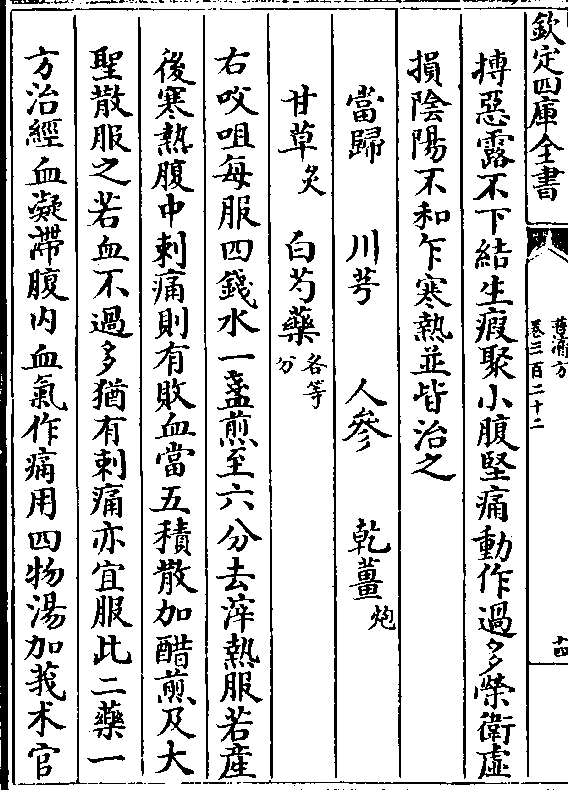 欽定四庫全書
普濟方
卷三百二十二
十四
搏惡露不下結生瘕聚小腹堅痛動作過多榮衛虛
損陰陽不和乍寒熱並皆治之
當歸 川芎 人參 乾薑炮
甘草炙 白芍藥各等分
右㕮咀每服四錢水一盞煎至六分去滓熱服若產
後寒熱腹中刺痛則有敗血當五積散加醋煎及大
聖散服之若血不過多猶有刺痛亦宜服此二藥一
方治經血凝滯腹内血氣作痛用四物湯加莪朮官